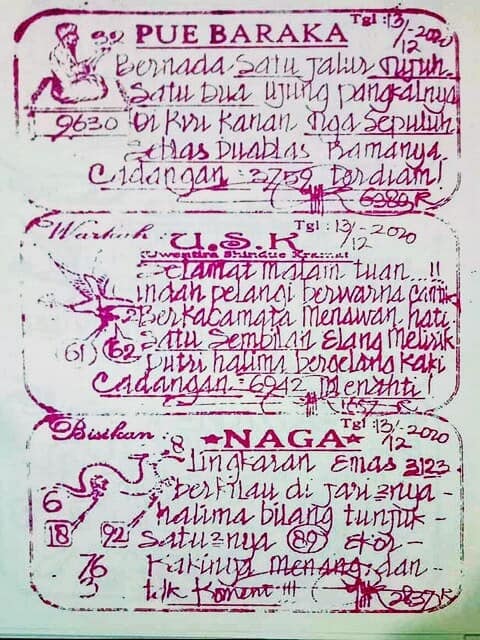 Tgl : 13/12-2020
PUE BARAKA
Bernada Satu Jalur Tujuh
Satu Dua ujung pangkalnya
9630 Di Kiri Kanan Tiga Sepuluh
Seblas Duablas Ramanya
Cadangan : 3759 terdiam!
6286 R
Tgl : 13/12-2020
Warkah : U.S.K
(Uwentira Shindue Kramat
Selamat malam tuan...!!
indah pelangi berwarna cantik
Berkacamata Menawan hati
61 62 Satu Sembilan Elang Melirik
putri halima bergelang kaki
Cadangan : 6942 Menanti!
1657 R
Tgl : 13/12-2020
Bisikan : ★NAGA★
8
7
Lingkaran Emas 3123
berkilau di jari2nya -
6
halima bilang tunjuk -
18 92 Satu2nya 89 Ekor -
76 Kakinya Menang dan -
3 tdk Koment !!!
2837 R